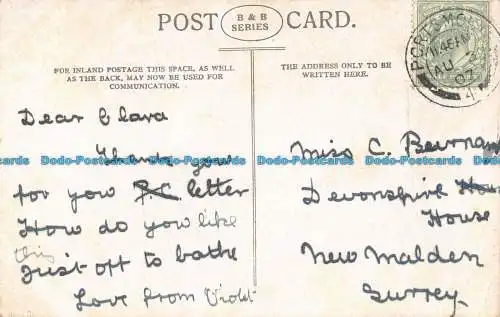 POST CARD.
B & B
SERIES
FOR INLAND POSTAGE THIS SPACE, AS WELL
AS THE BACK, MAY NOW BE USED FOR
COMMUNICATION.
THE ADDRESS ONLY TO BE
WRITTEN HERE.
Dear Clara
Thank you
for you P.C. letter
How do you like
this
Just off to bathe
Love from Violet
Miss C.
Devonshire Hou
House
New Malden
Surrey
Dodo-Postcards Dodo-Postcards Dodo-Postcards Dodo-Postcards
Dodo-Postcards Dodo-Postcards Dodo-Postcards Dodo-Postcards